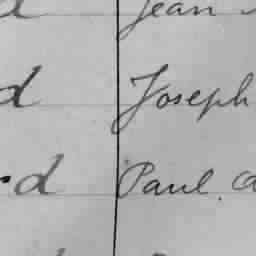 d Jean
d Joseph
rd Paul. a